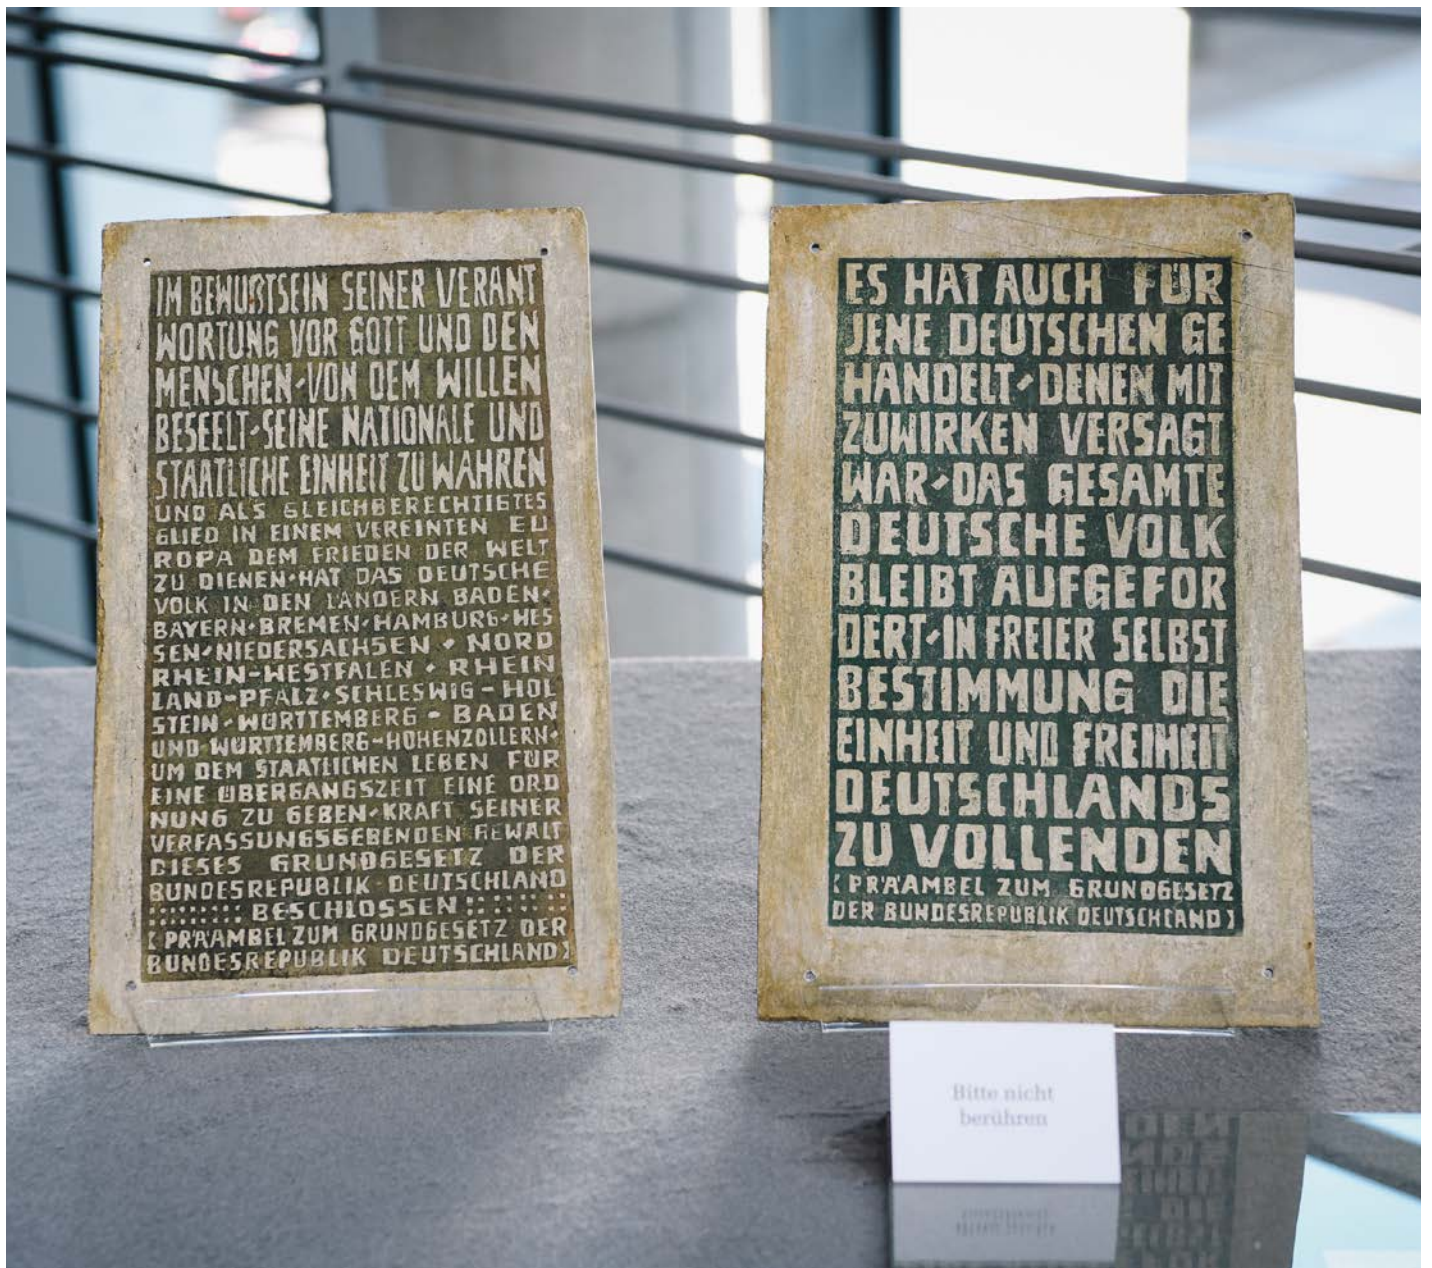 IM BEWUẞTSEIN SEINER VERANT
WORTUNG VOR GOTT UND DEN
MENSCHEN·VON DEM WILLEN
BESEELT·SEINE NATIONALE UND
STAATLICHE EINHEIT ZU WAHREN
UND ALS GLEICHBERECHTIGTES
GLIED IN EINEM VEREINTEN EU
ROPA DEM FRIEDEN DER WELT
ZU DIENEN·HAT DAS DEUTSCHE
VOLK IN DEN LÄNDERN BADEN·
BAYERN·BREMEN·HAMBURG·HES
SEN·NIEDERSACHSEN·NORD
RHEIN-WESTFALEN·RHEIN
LAND-PFALZ·SCHLESWIG-HOL
STEIN·WÜRTTEMBERG-BADEN
UND WÜRTTEMBERG-HOHENZOLLERN·
UM DEM STAATLICHEN LEBEN FÜR
EINE ÜBERGANGSZEIT EINE ORD
NUNG ZU GEBEN·KRAFT SEINER
VERFASSUNGSGEBENDEN GEWALT
DIESES GRUNDGESETZ DER
BUNDESREPUBLIK DEUTSCHLAND
BESCHLOSSEN
(PRÄAMBEL ZUM GRUNDGESETZ DER
BUNDESREPUBLIK DEUTSCHLAND)
ES HAT AUCH FÜR
JENE DEUTSCHEN GE
HANDELT·DENEN MIT
ZUWIRKEN VERSAGT
WAR·DAS GESAMTE
DEUTSCHE VOLK
BLEIBT AUFGEFOR
DERT·IN FREIER SELBST
BESTIMMUNG DIE
EINHEIT UND FREIHEIT
DEUTSCHLANDS
ZU VOLLENDEN
(PRÄAMBEL ZUM GRUNDGESETZ
DER BUNDESREPUBLIK DEUTSCHLAND)
Bitte nicht
berühren